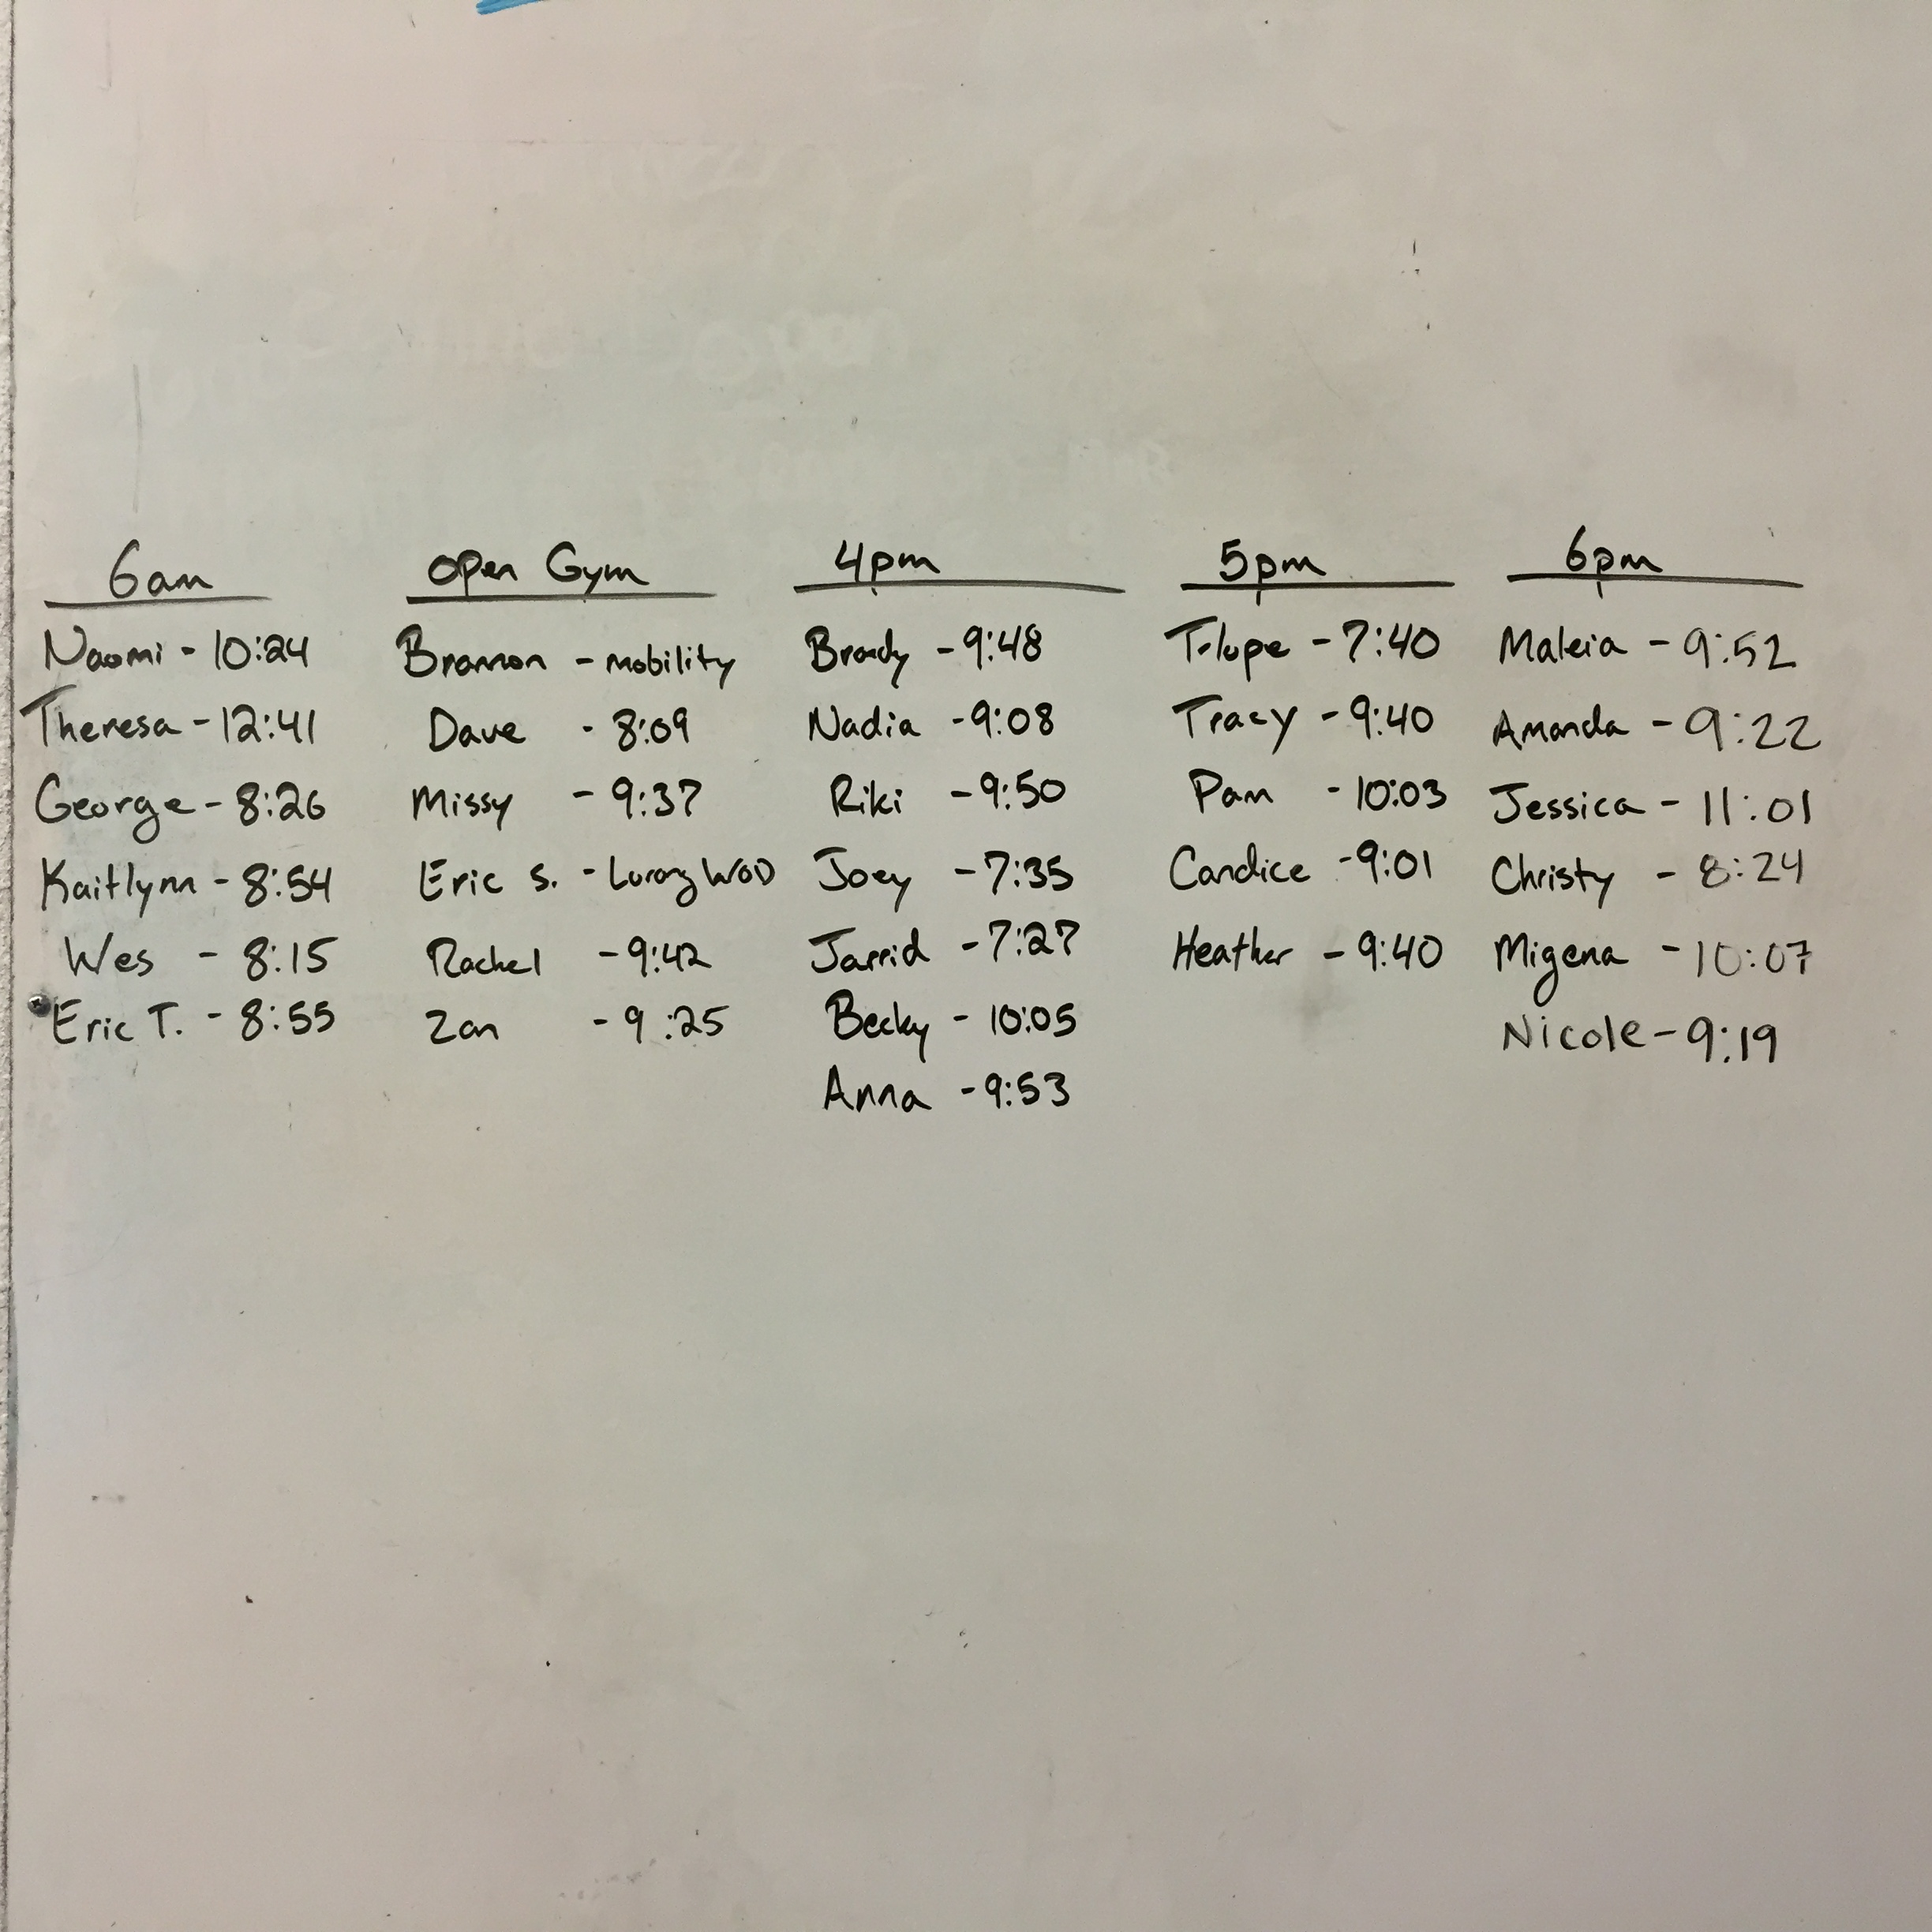 6am
Naomi - 10:24
Theresa - 12:41
George - 8:26
Kaitlynn - 8:54
Wes - 8:15
Eric T. - 8:55
open Gym
Brannon - mobility
Dave - 8:09
Missy - 9:37
Eric S. - Lurong WOD
Rachel - 9:42
Zan - 9:25
4pm
Brady - 9:48
Nadia - 9:08
Riki - 9:50
Joey - 7:35
Jarrid - 7:27
Becky - 10:05
Anna - 9:53
5pm
T-lupe - 7:40
Tracy - 9:40
Pam - 10:03
Candice - 9:01
Heather - 9:40
6pm
Maleia - 9:52
Amanda - 9:22
Jessica - 11:01
Christy - 8:24
Migena - 10:07
Nicole - 9:19